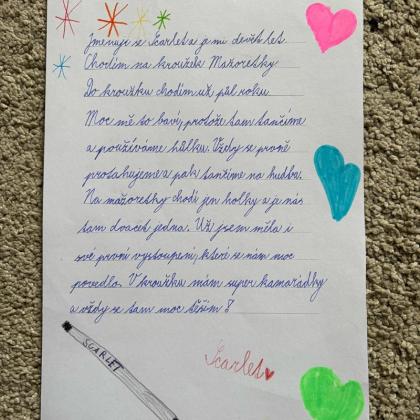 Jmenuji se Scarlet a je mi devět let.
Chodím na kroužek Mažoretky.
Do kroužku chodím už půl roku.
Moc mě to baví, protože tam tančíme
a používáme hůlku. Vždy se prvně
protahujeme a pak tančíme na hudbu.
Na mažoretky chodí jen holky a je nás
tam dvacet jedna. Už jsem měla i
své první vystoupení, které se nám moc
povedlo. V kroužku mám super kamarádky
a vždy se tam moc těším!
Scarlet
SCARLET